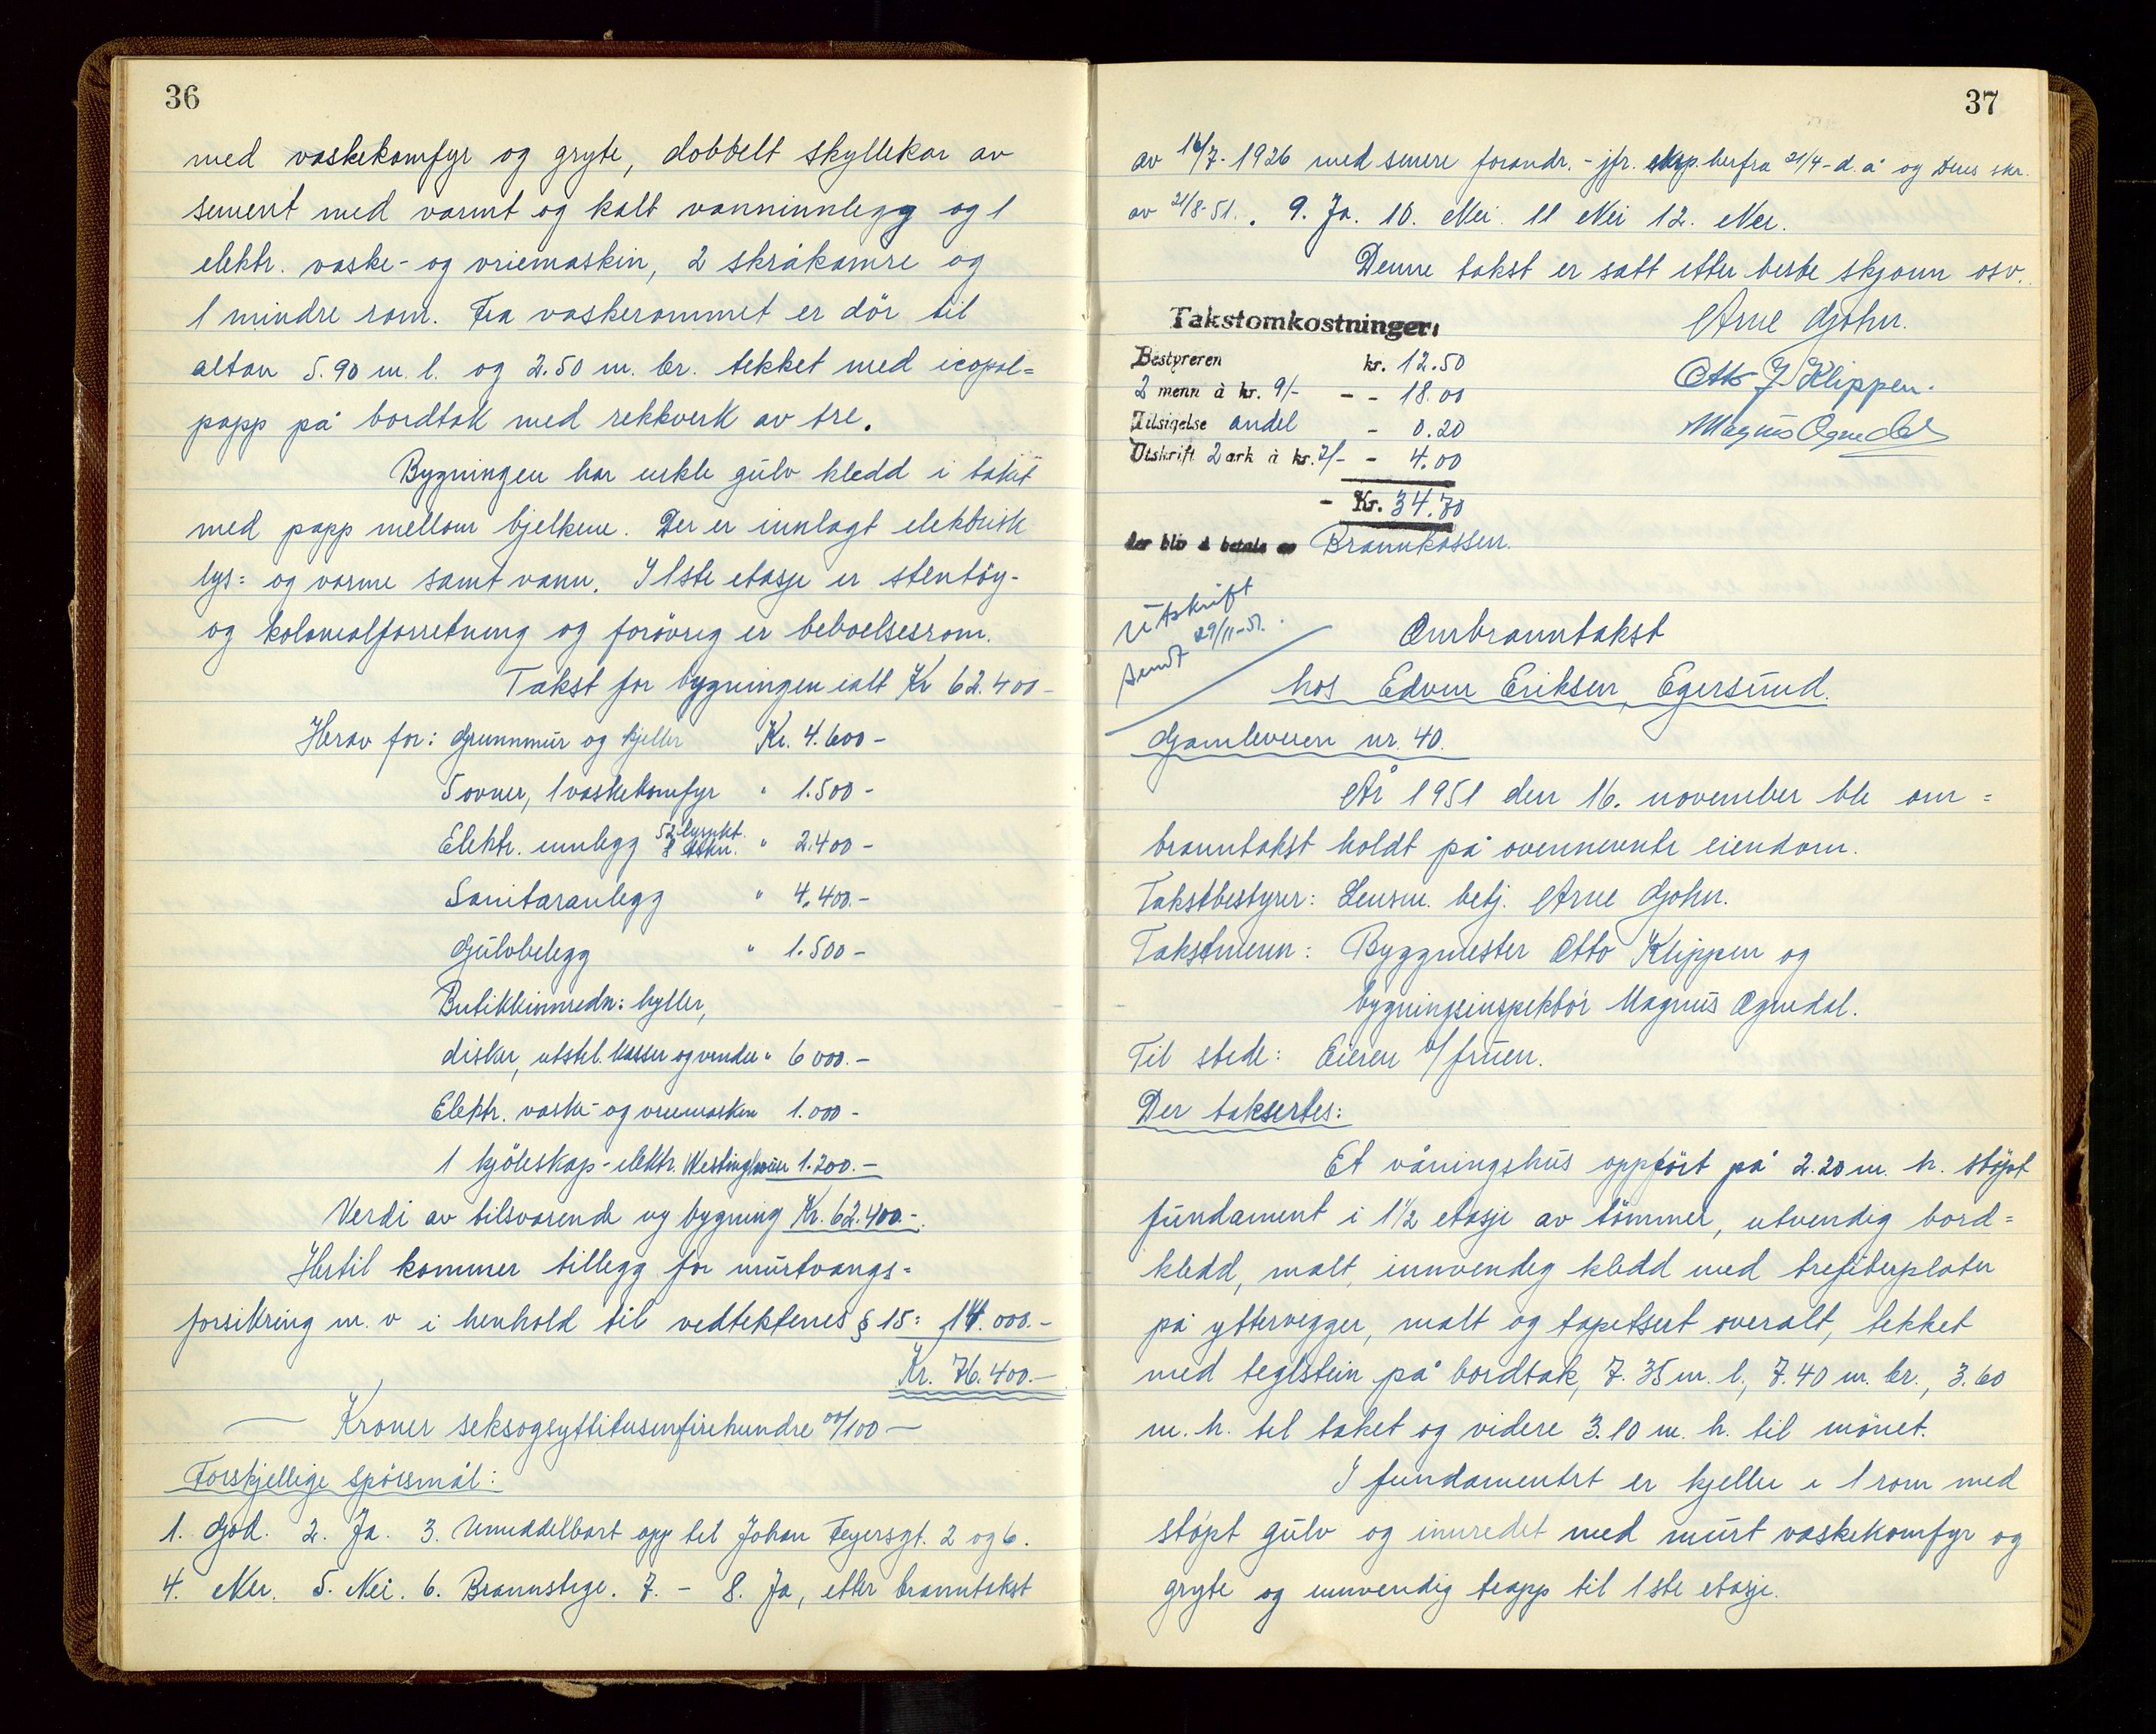 36
med vaskekomfyr og gryte, dobbelt skyllekar av
sement med varmt og kalt vanninnlegg og 1
elektr. vaske- og vriemaskin, 2 skråkamre og
1 mindre rom. Fra vaskerommet er dör til
altan 5.90 m. l. og 2.50 m. br. tekket med icopal=
papp på bordtak med rekkverk av tre.
Bygningen har enkle gulv kledd i taket
med papp mellom bjelkene. Der er innlagt elektrisk
lys= og varme samt vann. I 1ste etasje er stentöy-
og kolonialforretning og forövrig er beboelsesrom.
Takst for bygningen ialt Kr 62.400-
Herav for: Grunnmur og kjeller Kr. 4.600-
5 ovner, 1 vaskekomfyr " 1.500-
Elektr. innlegg 52 lyspkt. 8 stkn. " 2.400-
Sanitæranlegg " 4.400.-
Gulvbelegg " 1.500-
Butikkinnredn: hyller,
disker, utstil. kasser og vinduer " 6 000.-
Elektr. vaske- og vriemaskin 1.000-
1 kjöleskap - elektr. Westinghouse 1.200.-
Verdi av tilsvarende ny bygning Kr. 62.400.-
Hertil kommer tillegg for murtvangs=
forsikring m. v i henhold til vedtektenes § 15: 14.000.-
Kr. 76.400.-
— Kroner seksogsyttitusenfirehundre 00/100 —
Forskjellige spörsmål:
1. God. 2. Ja. 3. Umiddelbart opp til Johan Feyersgt. 2 og 6.
4. Nei. 5. Nei. 6. Brannstige. 7. - 8. Ja, etter branntakst
37
av 16/7-1926 med senere forandr. - jfr. eksp. herfra 21/4-d.å og Deres skr.
av 21/8-51. 9. Ja. 10. Nei. 11 Nei 12. Nei.
Denne takst er satt etter beste skjønn osv.
Takstomkostninger: Arne Gjohn.
Bestyreren kr. 12.50
Otto J Klippen.
2 menn à kr. 9/- - - 18.00
Tilsigelse andel - 0.20
Magnus Ognedal
Utskrift 2 ark à kr. 2/- - 4.00
- Kr. 34.70
der bliv å betale av Brannkassen.
Utskrift
sendt 29/11-51.
Ombranntakst
hos Edvin Eriksen, Egersund.
Gamleveien nr. 40.
År 1951 den 16. november ble om=
branntakst holdt på ovennevnte eiendom.
Takstbestyrer: Lensm. betj. Arne Gjohn.
Takstmenn: Byggmester Otto Klippen og
bygningsinspektör Magnus Ognedal.
Til stede: Eieren v/ fruen.
Der takserbes:
Et våningshus oppfört på 2.20 m. h. stöpt
fundament i 1½ etasje av tömmer, utvendig bord=
kledd, malt, innvendig kledd med trefiberplater
på yttervegger, malt og tapetsert overalt, tekket
med teglstein på bordtak, 7.35 m. l., 7.40 m. br., 3.60
m. h. til taket og videre 3.10 m. h. til mönet.
I fundamentet er kjeller i 1 rom med
stöpt gulv og innredet med murt vaskekomfyr og
gryte og innvendig trapp til 1ste etasje.